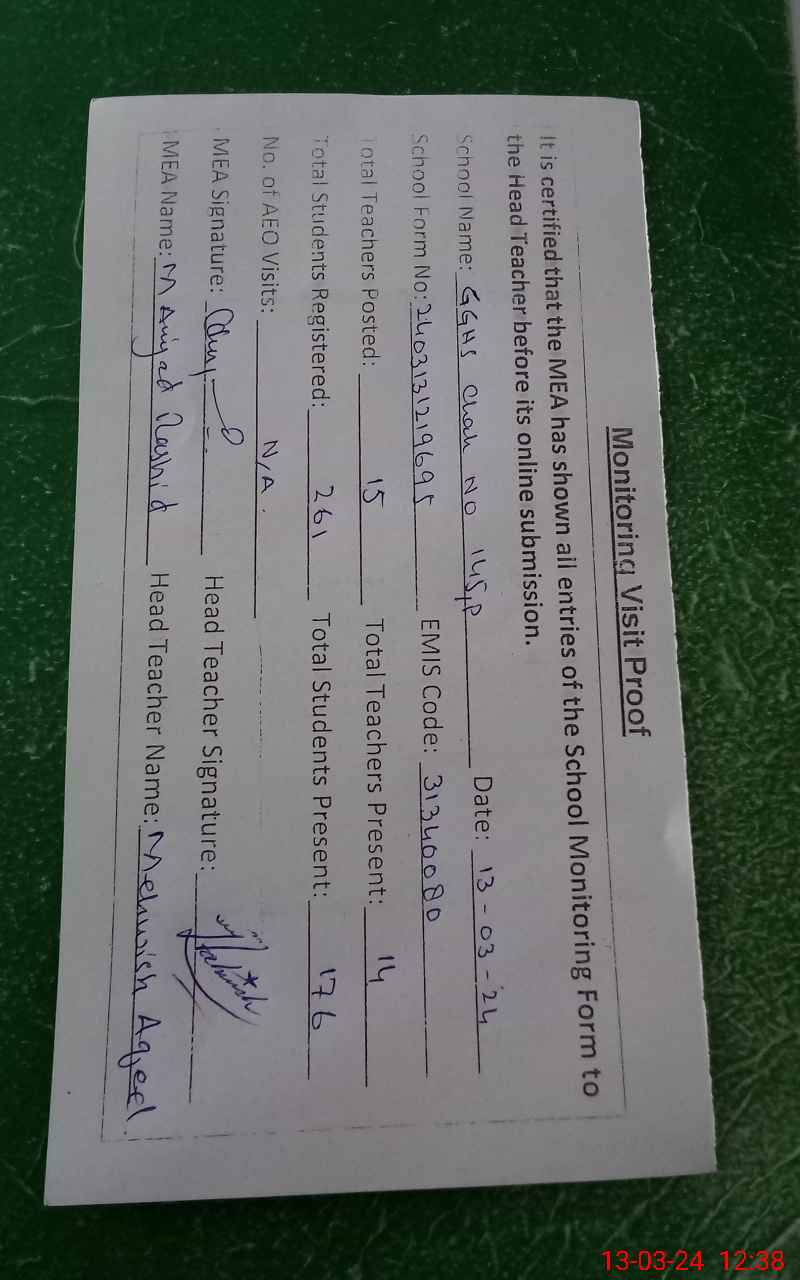 Monitoring Visit Proof
It is certified that the MEA has shown all entries of the School Monitoring Form to
the Head Teacher before its online submission.
School Name: GGHS Chak No 145,P Date: 13-03-24
School Form No: 2403131219695 EMIS Code: 31340080
Total Teachers Posted: 15 Total Teachers Present: 14
Total Students Registered: 261 Total Students Present: 176
No. of AEO Visits: N/A.
MEA Signature: Head Teacher Signature:
MEA Name: M Amjad Rashid Head Teacher Name: Mehwish Aqeel
13-03-24 12:38